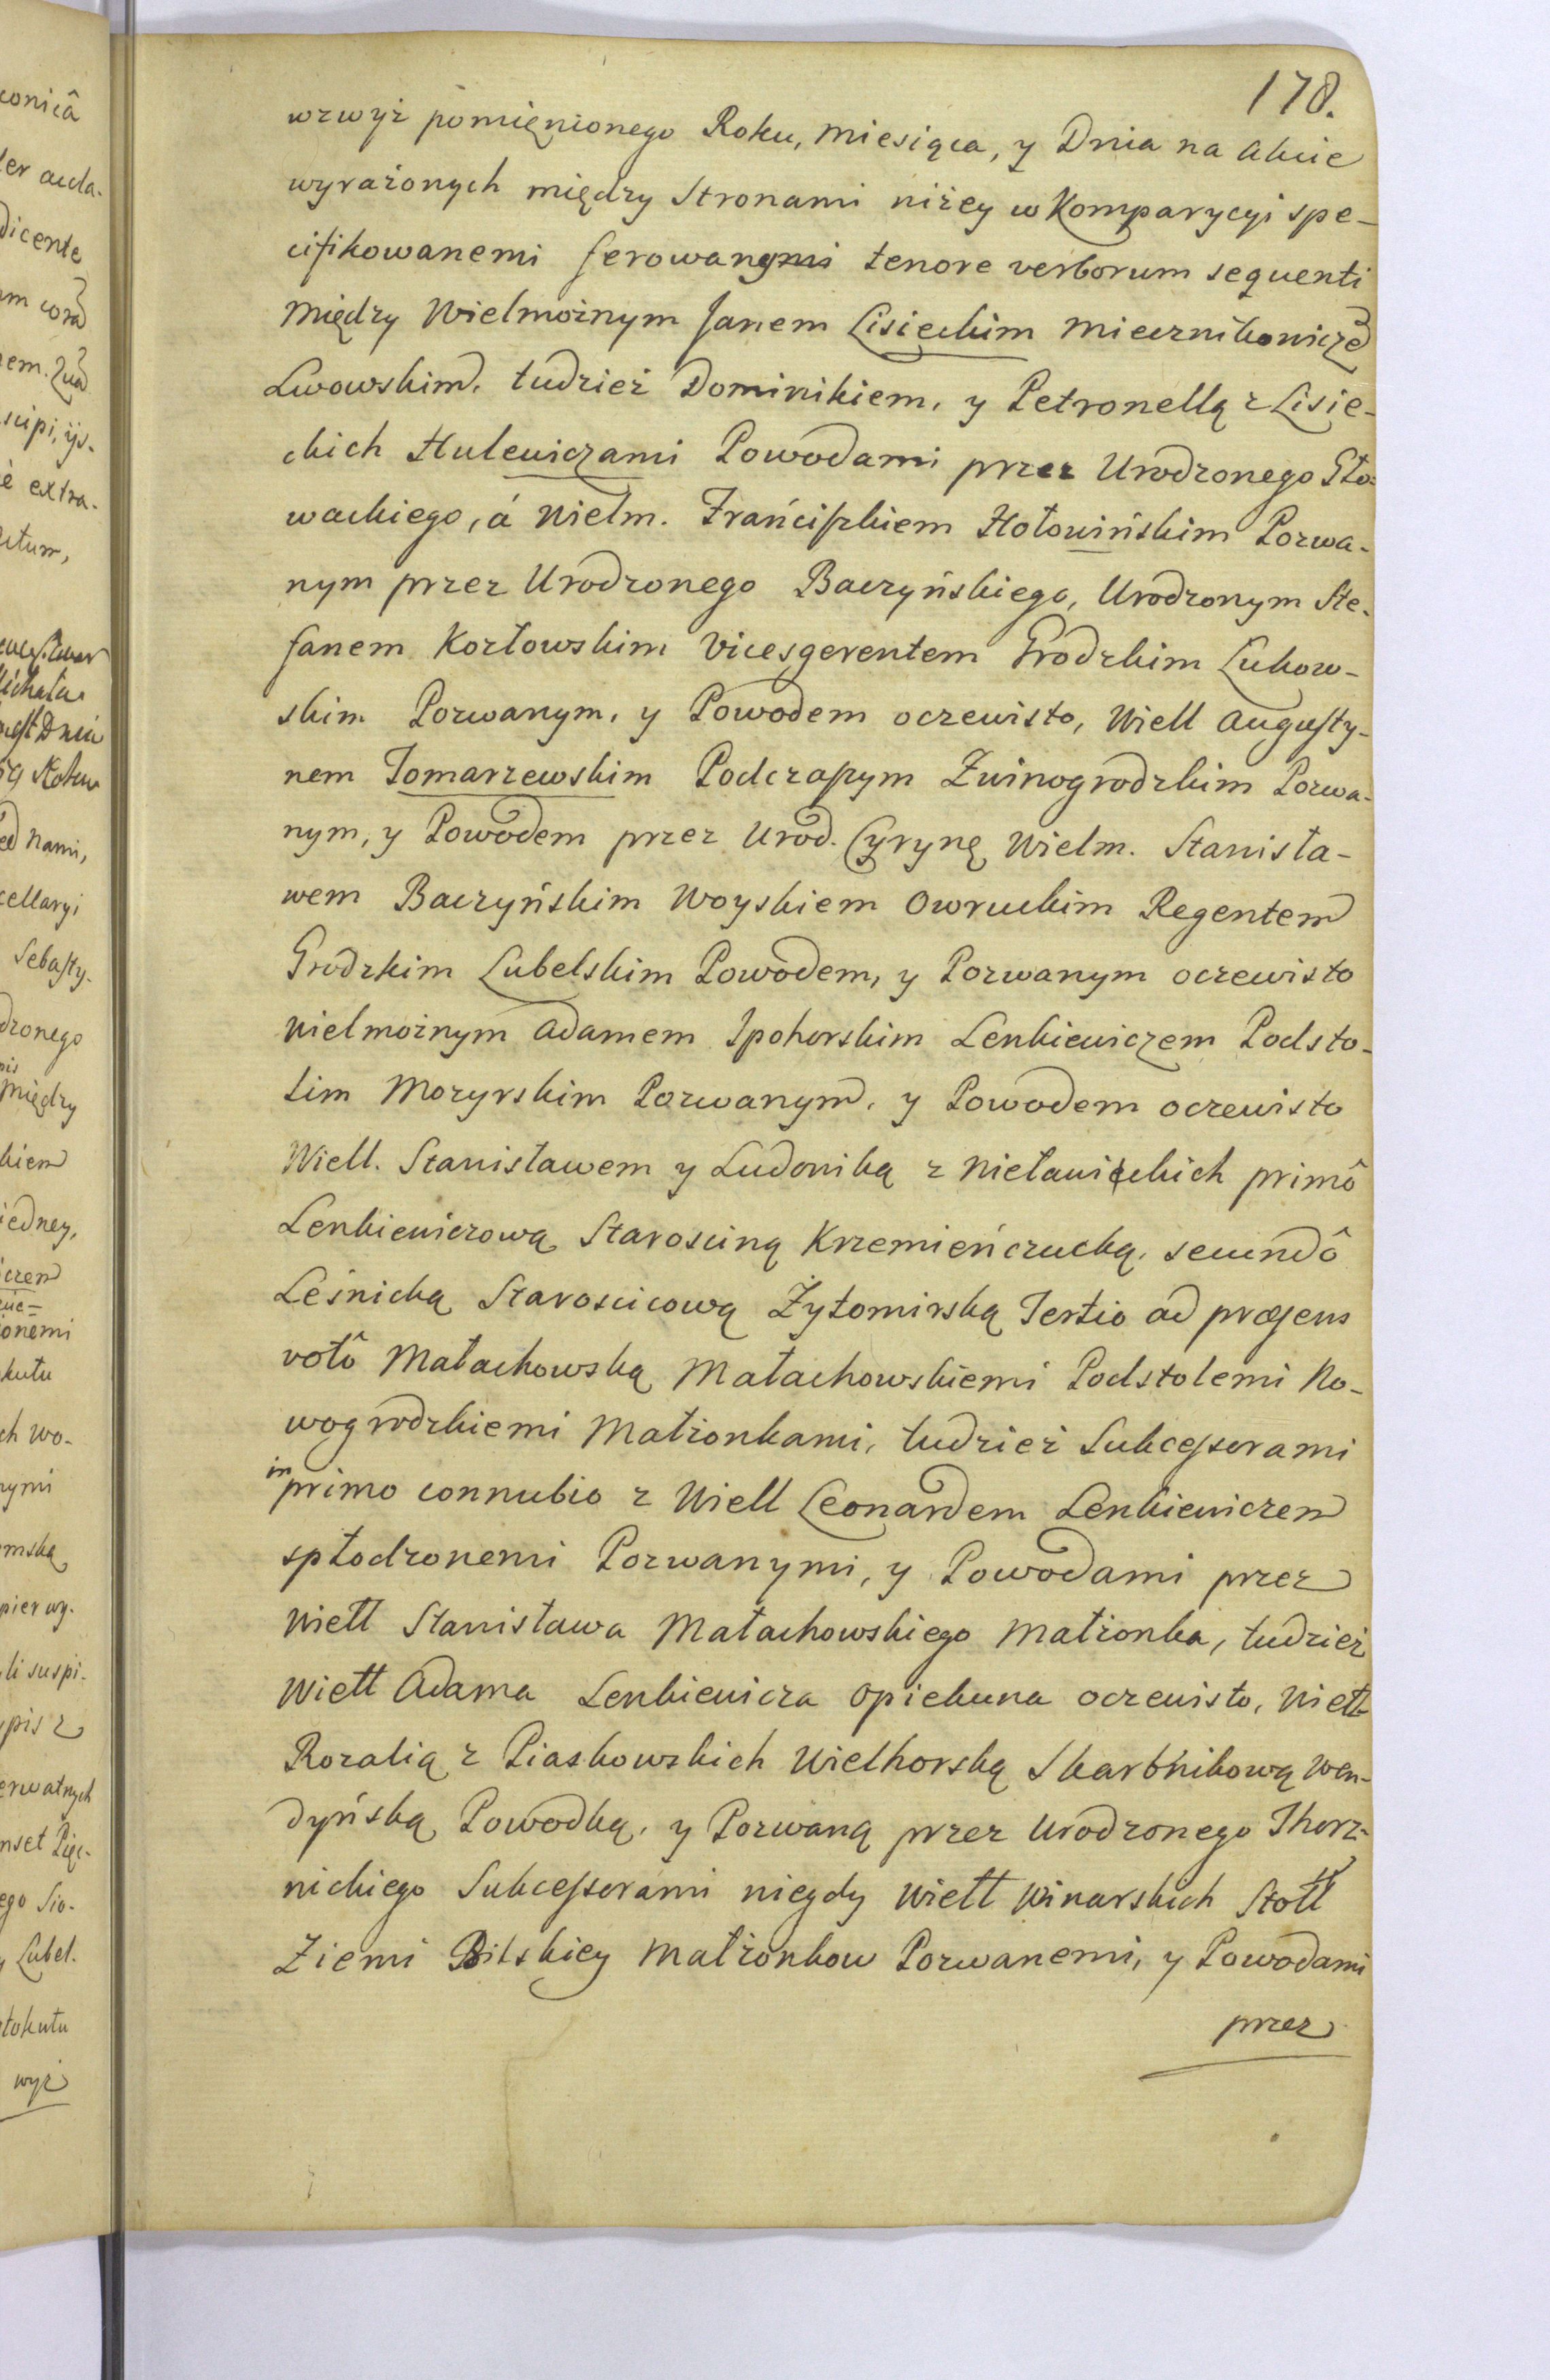 178.
wzwyż pomięnionego Roku, Miesiąca, y Dnia na Akcie
wyrażonych między Stronami niżey w Komparycyi spe-
cifikowanemi ferowanym tenore verborum sequenti
Między Wielmożnym Janem Lisieckim Miecznikowiczẽ
Lwowskim, tudzież Dominikiem, y Petronellą z Lisie-
ckich Hulewiczami Powodami przez Urodzonego Gło-
wackiego, á Wielm. Frańciszkiem Hołowińskim Pozwa-
nym przez Urodzonego Baczyńskiego, Urodzonym Ste-
fanem Kozłowskim Vicesgerentem Grodzkim Lukow-
skim Pozwanym, y Powodem oczewisto, Wiell Augusty-
nem Tomarzewskim Podczaszym Zwinogrodzkim Pozwa-
nym, y Powodem przez Urod. Cyrynę Wielm. Stanisła-
wem Baczyńskim Woyskiem Owruckim Regentem
Grodzkim Lubelskim Powodem, y Pozwanym oczewisto
Wielmożnym Adamem Ipohorskim Lenkiewiczem Podsto-
lim Mozyrskim Pozwanym, y Powodem oczewisto
Wiell. Stanisławem y Ludoniką z Nieławickich primô
Lenkiewiczową Starosciną Krzemieńczucką, secundô
Leśnicką Staroscicową Żytomirską Tertio ad præsens
votô Małachowską Małachowskiemi Podstolemi No-
wogrodzkiemi Małżonkami, tudzież Sukcessorami
in primo connubio z Wiell Leonardem Lenkiewiczem
spłodzonemi Pozwanymi, y Powodami przez
Wiell Stanisława Małachowskiego Małżonka, tudzież
Wiell Adama Lenkiewicza Opiekuna oczewisto, Wiell
Rozalią z Piaskowskich Wielhorską Skarbnikową Wen-
dyńską Powodką, y Pozwaną przez Urodzonego Thorz-
nickiego Sukcessorami niegdy Wiell Winarskich Stoll
Ziemi Bilskiey Małżonkow Pozwanemi, y Powodami
przez